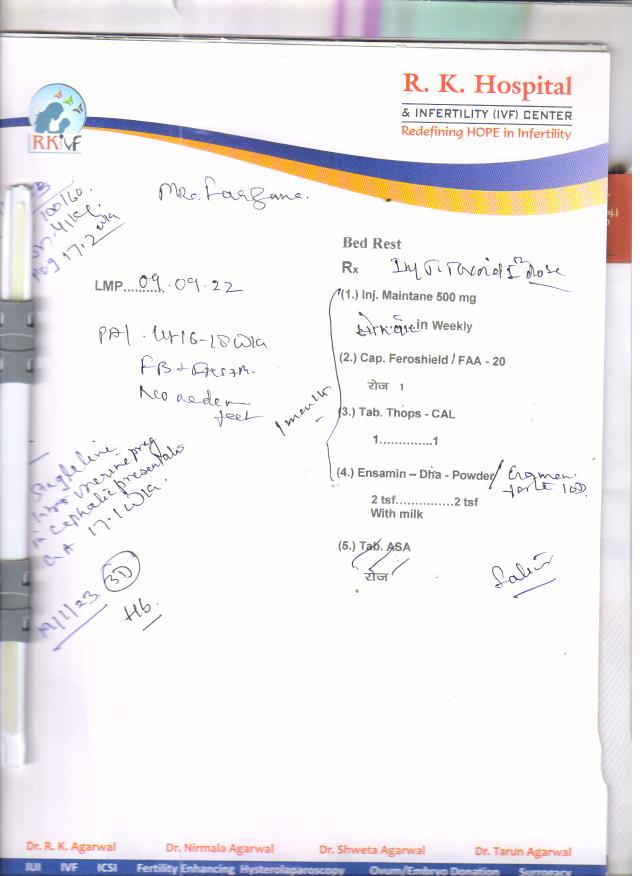 R. K. Hospital
& INFERTILITY (IVF) CENTER
Redefining HOPE in Infertility
RKIVF
100/60
POG 17.2 wks
Mrs. Farzana.
Bed Rest
Rx Inj T. Toxoid Ist dose
LMP........... 09.09.22
(1.) Inj. Maintane 500 mg
in Weekly
P/A . ut 16-18 wks
(2.) Cap. Feroshield / FAA - 20
रोज 1
No oedem
feet
1 month
(3.) Tab. Thops - CAL
1.............1
Single live
intra uterine preg
in cephalic presentatio
GA 17.1 wks.
(4.) Ensamin – Dha - Powder /
forte 10D
2 tsf...............2 tsf
With milk
(5.) Tab. ASA
रोज
3D
19/1/23
Hb
Dr. R. K. Agarwal Dr. Nirmala Agarwal Dr. Shweta Agarwal Dr. Tarun Agarwal
IUI IVF ICSI Fertility Enhancing Hysterolaparoscopy Ovum/Embryo Donation Surrogacy